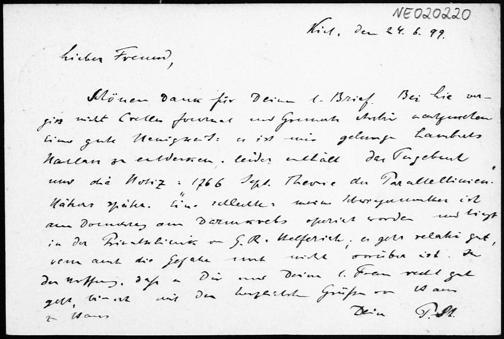 NE020220
Kiel, den 24. 6. 99.
Lieber Freund,
Schönen Dank für Deinen l. Brief. Bei Lie ver-
giss nicht Crelles Journal und Grunerts Archiv
eine gute Neuigkeit: es ist mir gelungen Lamberts
Nachlass zu entdecken. Leider enthält das Tagebuch
nur die Notiz: 1766 Sept. Theorie der Parallellinien.
Näheres später. Eine schlechte: meine Schwiegermutter ist
am Donnerstag am Darmkrebs operirt worden und liegt
in der Privatklinik von G. R. Helferich, es geht relativ gut,
wenn auch die Gefahr noch nicht vorüber ist. In
der Hoffnung, dass es Dir und Deiner l. Frau recht gut
geht, mit den herzlichsten Grüssen von Haus
zu Haus
Dein P. St.